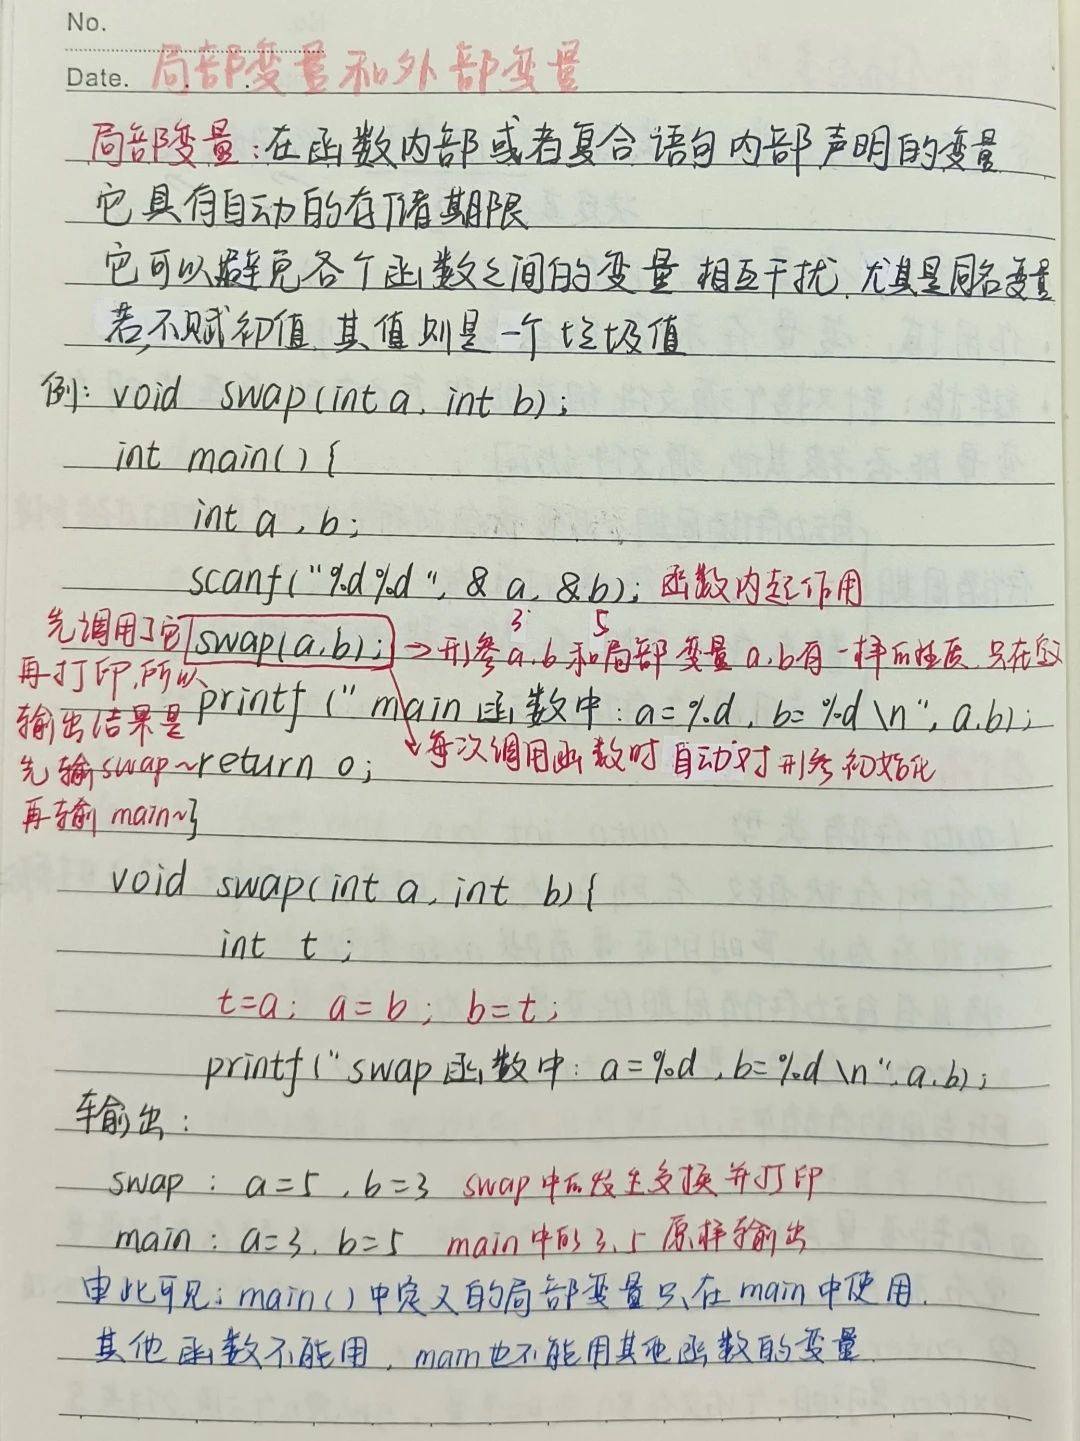 No.
Date. 局部变量和外部变量
局部变量：在函数内部或者复合语句内部声明的变量
它具有自动的存储期限
它可以避免各个函数之间的变量相互干扰，尤其是同名变量
若不赋初值，其值则是一个垃圾值
例：void swap(int a, int b);
int main() {
int a, b;
scanf("%d%d", &a, &b); 函数内起作用
3 5
先调用了它 swap(a,b); → 形参a,b和局部变量a,b有一样的性质，只在这
再打印,所以
printf ("main 函数中: a=%d, b=%d \n", a,b);
输出结果是
每次调用函数时自动对形参初始化
先输swap~ return 0;
再输 main~ }
void swap(int a, int b) {
int t ;
t=a; a=b; b=t;
printf("swap函数中: a=%d, b=%d \n", a,b);
输出:
swap : a=5, b=3 swap中的发生交换并打印
main : a=3, b=5 main中的3,5原样输出
由此可见：main()中定义的局部变量只在main中使用，
其他函数不能用，main也不能用其他函数的变量